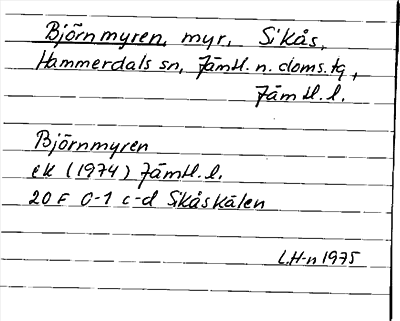 Björnmyren, myr, Sikås,
Hammerdals sn, Jämtl. n. doms. tg,
Jämtl. l.
Björnmyren
ek (1974) Jämtl. l.
20 F 0-1 c-d Sikåskälen
L.H-n 1975